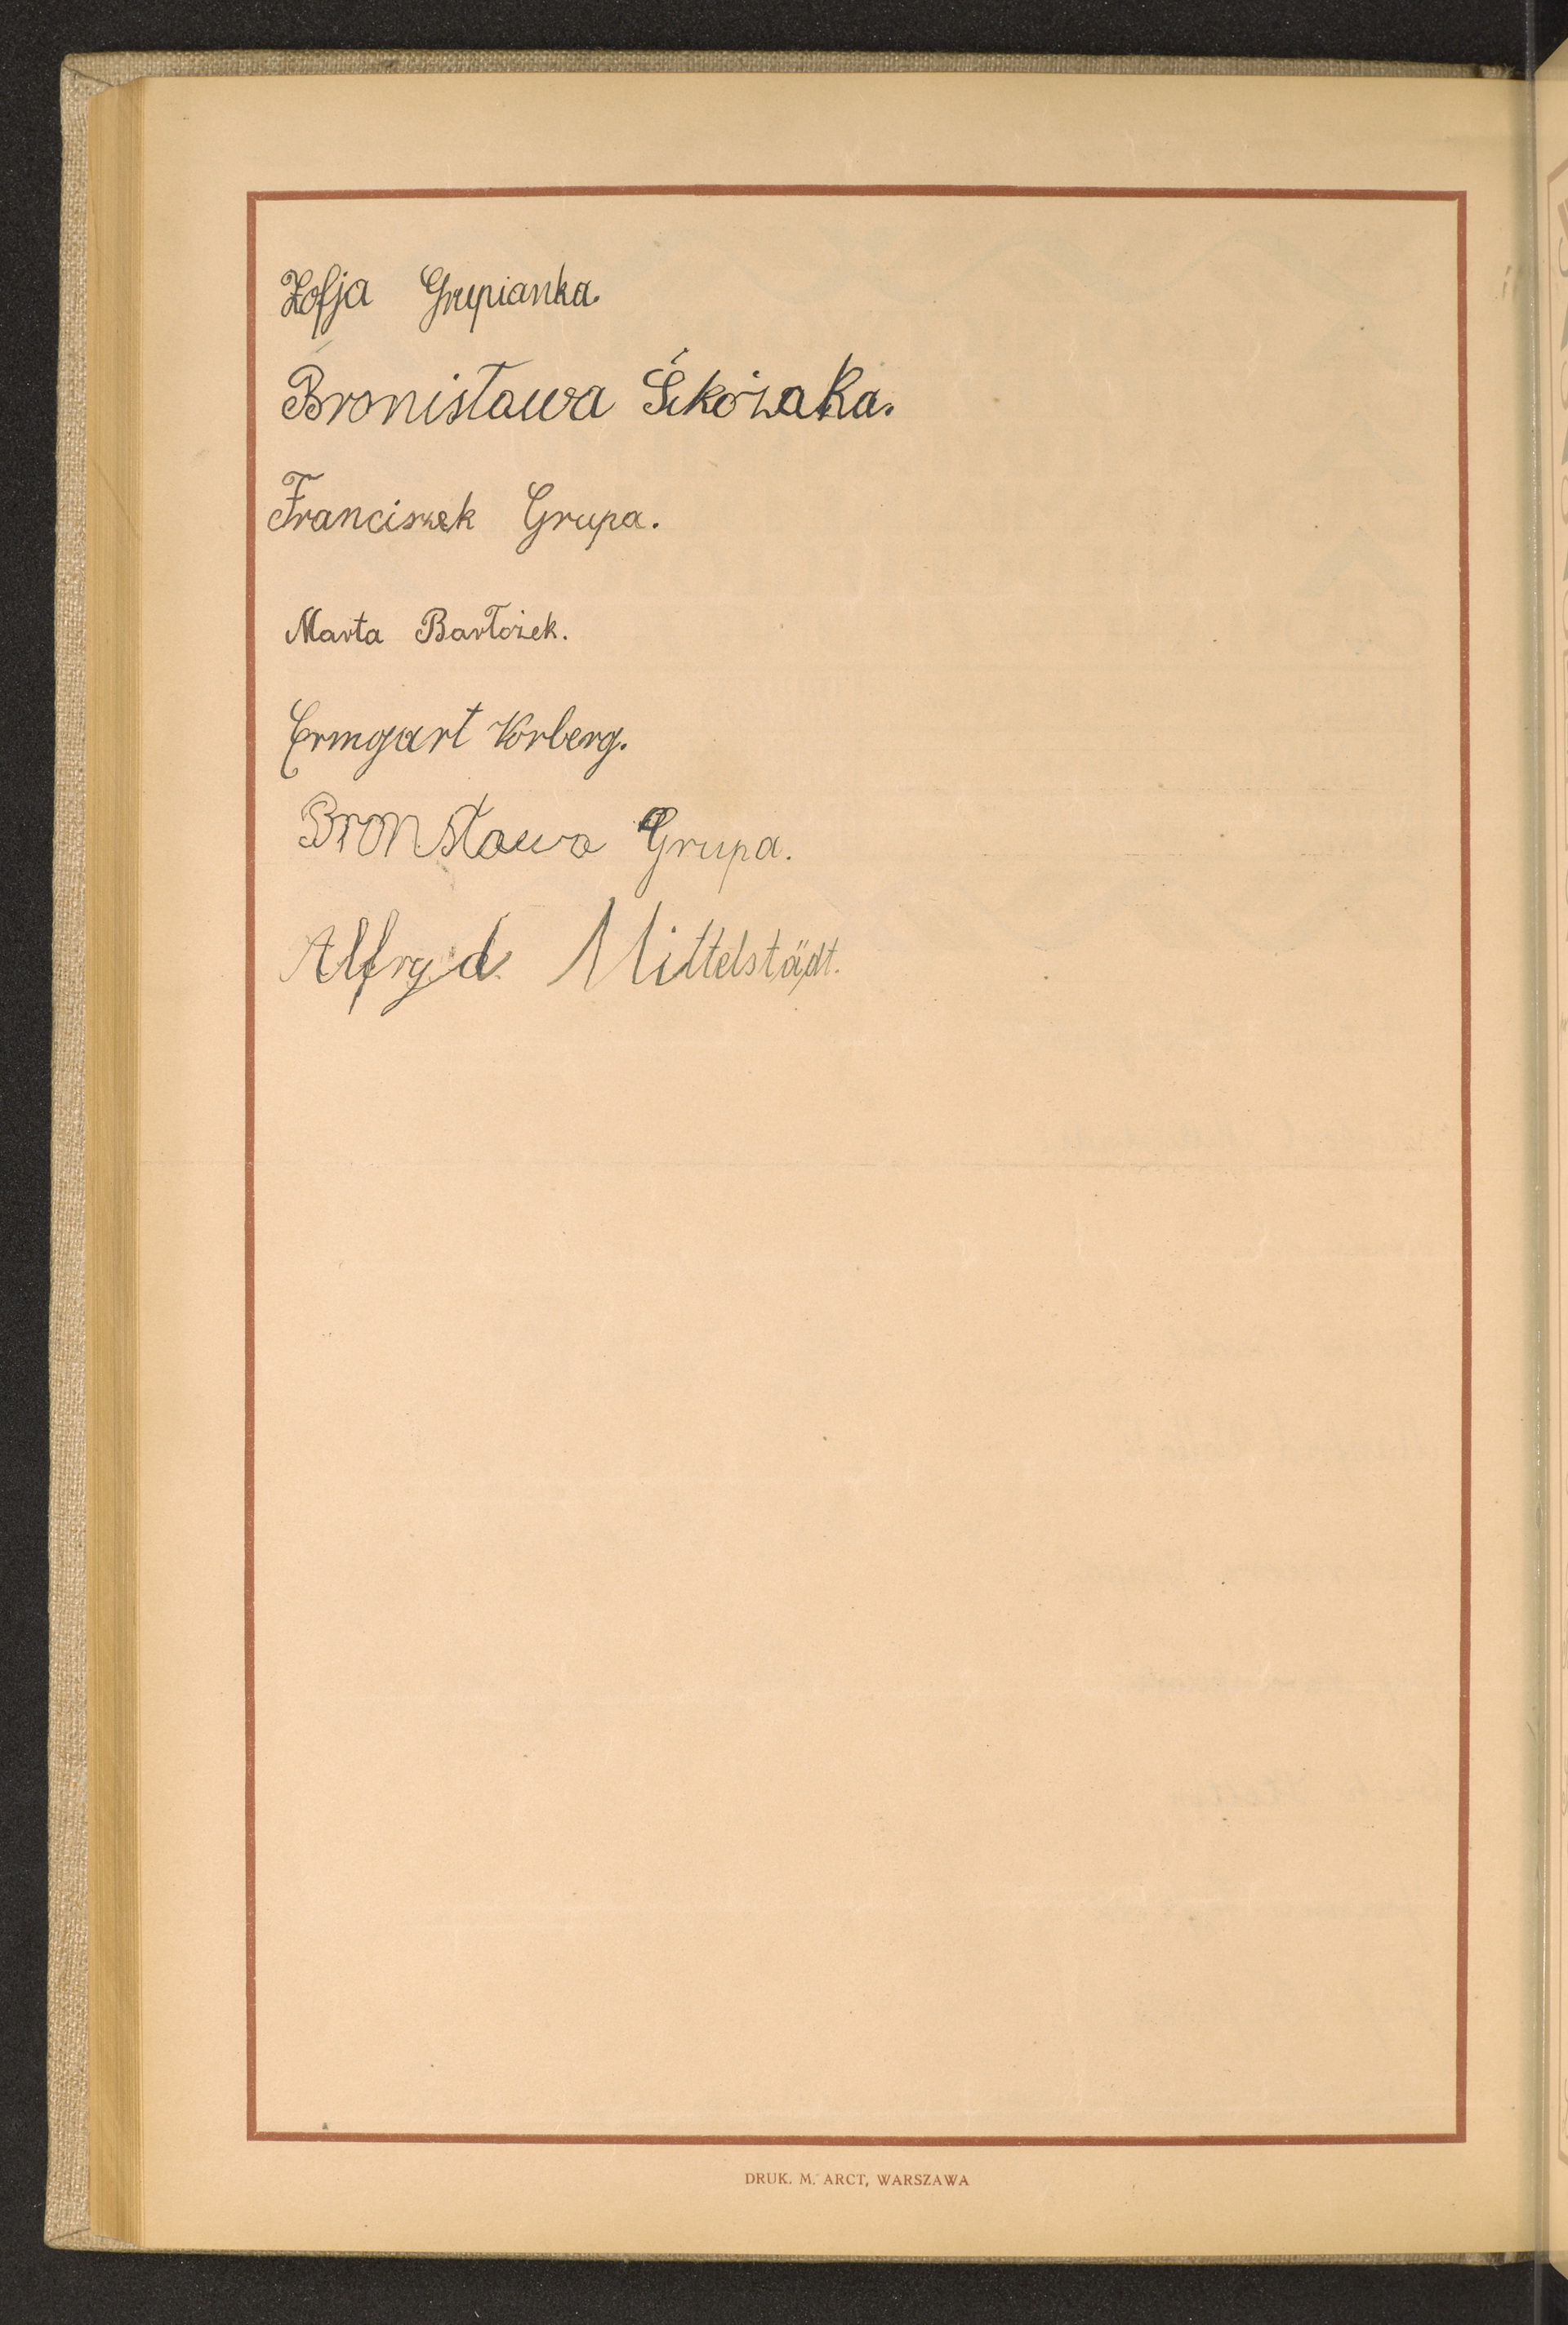 Zofja Grupianka.
Bronisława
Franciszek Grupa.
Marta Bartożek.
Ermgart Vorberg.
Bronsława Grupa.
Alfryd Mittelstädt.
DRUK. M. ARCT, WARSZAWA